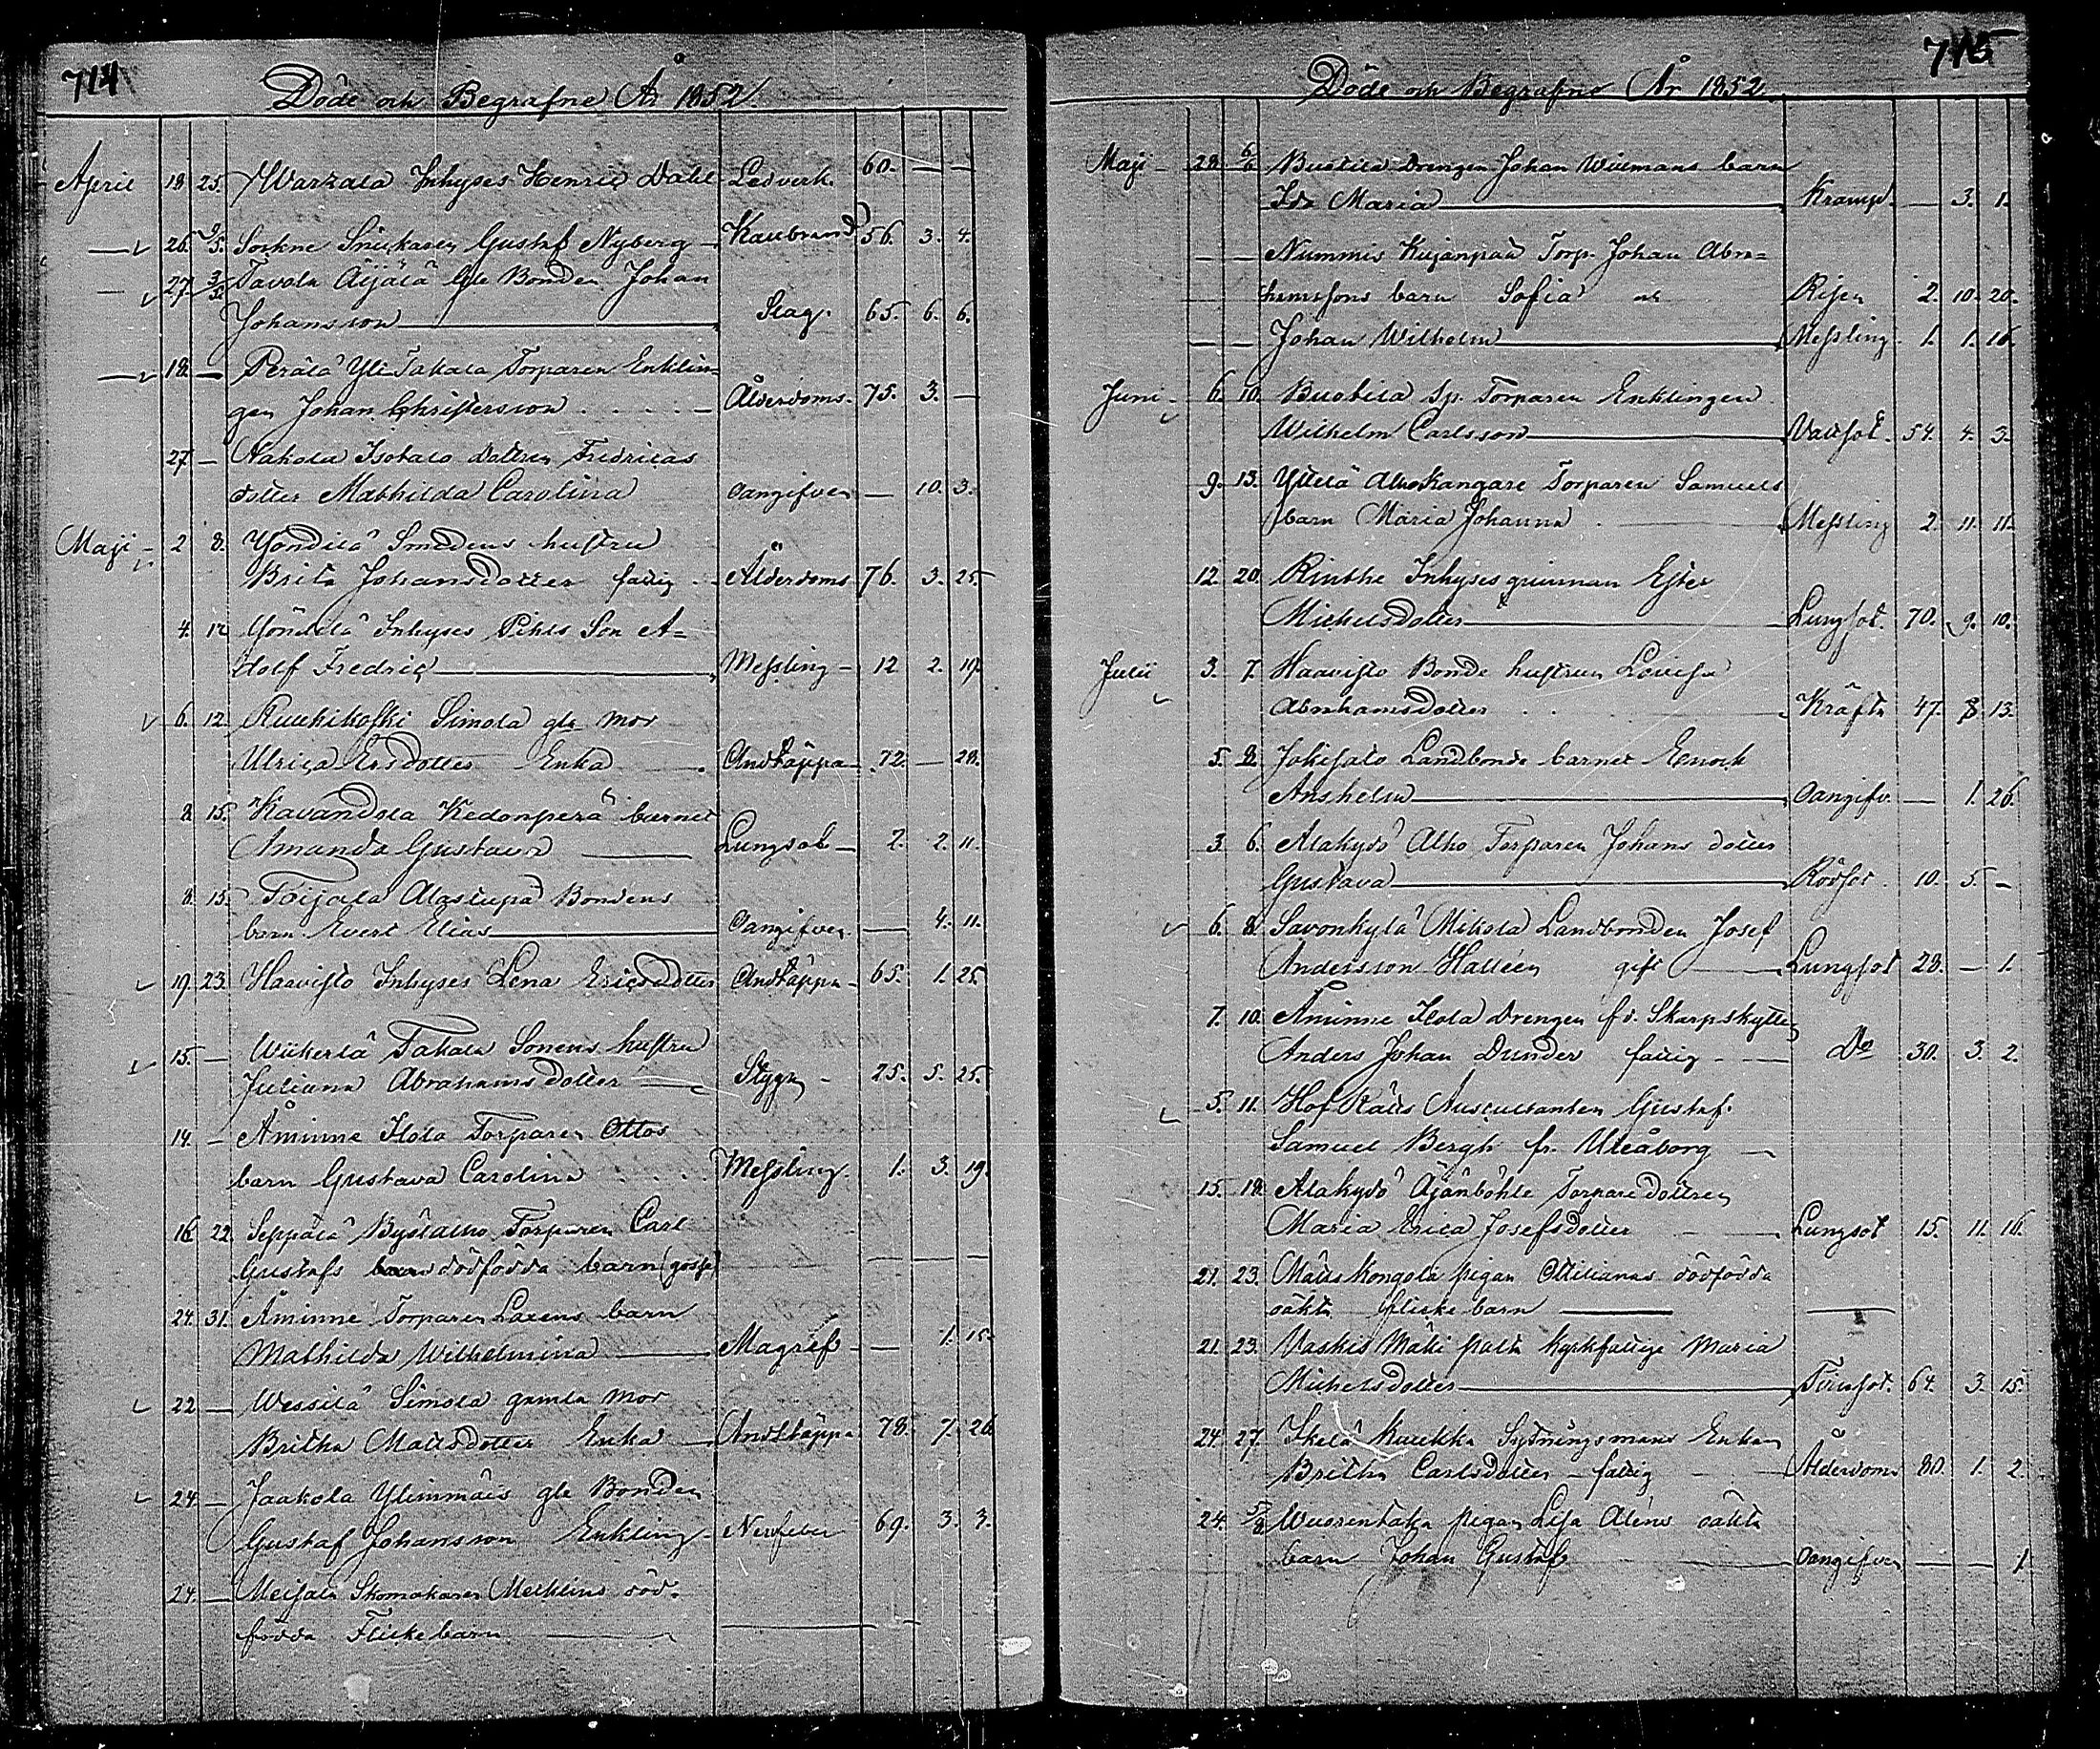 714
Döde och Begrafne År 1852
April 18 25. Warzala Inhyses Henric Dahl Ledverk. 60. — —
— 26. 9/5. Sockne Snickaren Gustaf Nyberg — Kallbrand 56. 3. 4.
— 27. Tavola Äijälä gle Bonden Johan
Johansson Slag. 65. 6. 6.
— 18. — Perälä Yli Takala Torparen Enklin-
gen Johan Christersson Ålderdoms. 75. 3. —
27 — Isotalo dottren Fredricas
dotter Mathilda Carolina oangifven — 10. 3.
Maji 2 8. Yöndilä Smedens hustru
Brita Johansdotter fattig Ålderdoms 76. 3. 25.
4. 12 Yöndilä Inhyses Pihls Son A-
dolf Fredric Messling — 12 2. 19.
6. 12. Kuuhikoski Simola gla mor
Ulrica Ersdotter Enka Andtäppa 72. — 28.
8. 15. Kavandola Kedonperä barnet
Amanda Gustava Lungsot — 2. 2. 11.
8. 15. Töijala Alastupa Bondens
barn Evert Elias Oangifven — 4. 11.
19. 23. Haavisto Inhyses Lena Ericsdotter Andtäppa 65. 1. 25.
15. — Wiikerlä Takala Sonens hustru
Juliana Abrahamsdotter — 25. 5. 25.
14. — Åminne Ilola Torparen Ottos
barn Gustava Carolina Messling. 1. 3. 19.
16. 22. Seppälä Torparen Carl
Gustafs dödfödda barn (gosse) — — —
24. 31. Åminne Torparen Laxens barn
Mathilda Wilhelmina Magref — — 1. 15.
22 — Wessilä Simola gamla mor
Britha Mattsdotter Enka Andtäppa 78. 7. 26
24 — Jaakola Ylimmäis gle Bonden
Gustaf Johansson Enkling Nervfeber 69. 3. 3.
24. — Meisala Skomakaren Mecklins död-
födda Flickebarn
715
Döde och Begrafne År 1852.
Maji 28. 6/6 Drengen Johan Willmans barn
Ida Maria Kramp. — 3. 1.
— — Nummis Kujanpää Torp. Johan Abra-
hamssons barn Sofia och Risen 2. 10. 20.
— — Johan Wilhelm Messling 1. 1. 16.
Juni 6. 10. Sp. Torparen Enklingen
Wilhelm Carlsson Vattsot. 54. 4. 3.
9. 13. Yttilä Alhokangare Torparen Samuels
barn Maria Johanna Messling 2. 11. 11.
12. 20. Rinthe Inhyses qvinnan Ester
Michelsdotter Lungsot. 70. 9. 10.
Julii 3. 7. Haavisto Bonde hustrun Lovisa
Abrahamsdotter Kräfta 47. 8. 13.
5. 8. Jokisalo Landbonde barnet Enock
Anshelm Oangifv. — 1. 26.
3. 6. Alakydö Alho Torparen Johans dotter
Gustava Rödsot. 10. 5. —
6. 8. Savonkylä Mikola Landbonden Josef
Andersson Halleen gift Lungsot 28. — 1.
7. 10. Åminne Ilola Drengen fd. Skarpskytten
Anders Johan Dunder fattig — Do 30. 3. 2.
5. 11. HofRätts Auscultanten Gustaf
Samuel Bergh fr. Uleåborg
15. 18. Alakydö Äjänböhle Torpare dottren
Maria Erica Josefsdotter Lungsot 15. 11. 16.
21. 23. Mattskongola pigan Ottilianas dödfödda
oäkta flicke barn
21. 23. Vaskis Mäki kyrkfattige Maria
Michelsdotter Tvinsot. 64. 3. 15.
24. 27. Ikalä Kurkka Sytningsmans Enkan
Britha Carlsdotter — fattig Ålderdoms 80. 1. 2.
24. Wuorentaka pigan Lisa Aléns oäkta
barn Johan Gustaf Oangifven — — 1